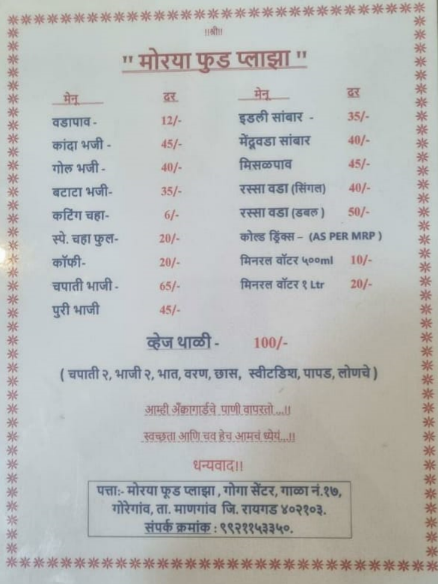 ॥श्री॥
" मोरया फुड प्लाझा "
मेनू दर
वडापाव - 12/-
कांदा भजी - 45/-
गोल भजी - 40/-
बटाटा भजी- 35/-
कटिंग चहा- 6/-
स्पे. चहा फुल- 20/-
कॉफी- 20/-
चपाती भाजी - 65/-
पुरी भाजी 45/-
मेनू दर
इडली सांबार - 35/-
मेंदूवडा सांबार 40/-
मिसळपाव 45/-
रस्सा वडा (सिंगल) 40/-
रस्सा वडा (डबल ) 50/-
कोल्ड ड्रिंक्स – (AS PER MRP )
मिनरल वॉटर ५००ml 10/-
मिनरल वॉटर १ Ltr 20/-
व्हेज थाळी - 100/-
( चपाती २, भाजी २, भात, वरण, छास, स्वीटडिश, पापड, लोणचे )
आम्ही अँक्वागार्डचे पाणी वापरतो...!!
स्वच्छता आणि चव हेच आमचं ध्येयं...!!
धन्यवाद!!
पत्ता:- मोरया फूड प्लाझा , गोगा सेंटर, गाळा नं.१७,
गोरेगांव, ता. माणगांव जि. रायगड ४०२१०३.
संपर्क क्रमांक : ९९२११५३३५०.